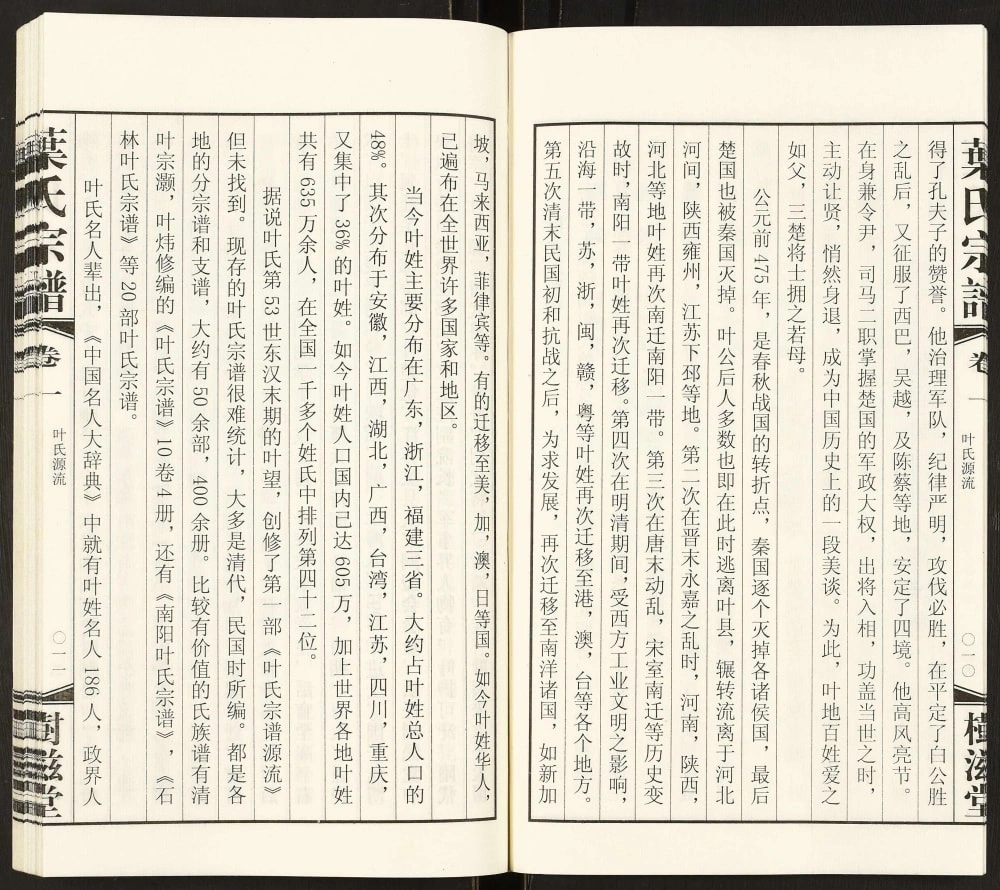 葉氏宗譜
卷
一
叶氏源流
〇一〇
樹滋堂
得了孔夫子的赞誉。他治理军队，纪律严明，攻伐必胜，在平定了白公胜
之乱后，又征服了西巴，吴越，及陈蔡等地，安定了四境。他高风亮节。
在身兼令尹，司马二职掌握楚国的军政大权，出将入相，功盖当世之时，
主动让贤，悄然身退，成为中国历史上的一段美谈。为此，叶地百姓爱之
如父，三楚将士拥之若母。
公元前 475 年，是春秋战国的转折点，秦国逐个灭掉各诸侯国，最后
楚国也被秦国灭掉。叶公后人多数也即在此时逃离叶县，辗转流离于河北
河间，陕西雍州，江苏下邳等地。第二次在晋末永嘉之乱时，河南，陕西，
河北等地叶姓再次南迁南阳一带。第三次在唐末动乱，宋室南迁等历史变
故时，南阳一带叶姓再次迁移。第四次在明清期间，受西方工业文明之影响，
沿海一带，苏，浙，闽，赣，粤等叶姓再次迁移至港，澳，台等各个地方。
第五次清末民国初和抗战之后，为求发展，再次迁移至南洋诸国，如新加
坡，马来西亚，菲律宾等。有的迁移至美，加，澳，日等国。如今叶姓华人，
已遍布在全世界许多国家和地区。
当今叶姓主要分布在广东，浙江，福建三省。大约占叶姓总人口的
48%。其次分布于安徽，江西，湖北，广西，台湾，江苏，四川，重庆，
又集中了 36% 的叶姓。如今叶姓人口国内已达 605 万，加上世界各地叶姓
共有 635 万余人，在全国一千多个姓氏中排列第四十二位。
据说叶氏第 53 世东汉末期的叶望，创修了第一部《叶氏宗谱源流》
但未找到。现存的叶氏宗谱很难统计，大多是清代，民国时所编。都是各
地的分宗谱和支谱，大约有 50 余部，400 余册。比较有价值的氏族谱有清
叶宗灏，叶炜修编的《叶氏宗谱》10 卷 4 册，还有《南阳叶氏宗谱》，《石
林叶氏宗谱》等 20 部叶氏宗谱。
叶氏名人辈出，《中国名人大辞典》中就有叶姓名人 186 人，政界人
葉氏宗譜
卷一
叶氏源流
〇一一
樹滋堂